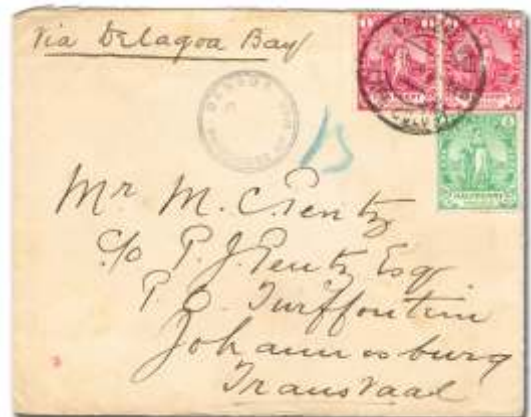 Via Delagoa Bay
Mr M. C. Pentz
c/o P. J. Pentz Esq
P. O. Turffontein
Johannesburg
Transvaal